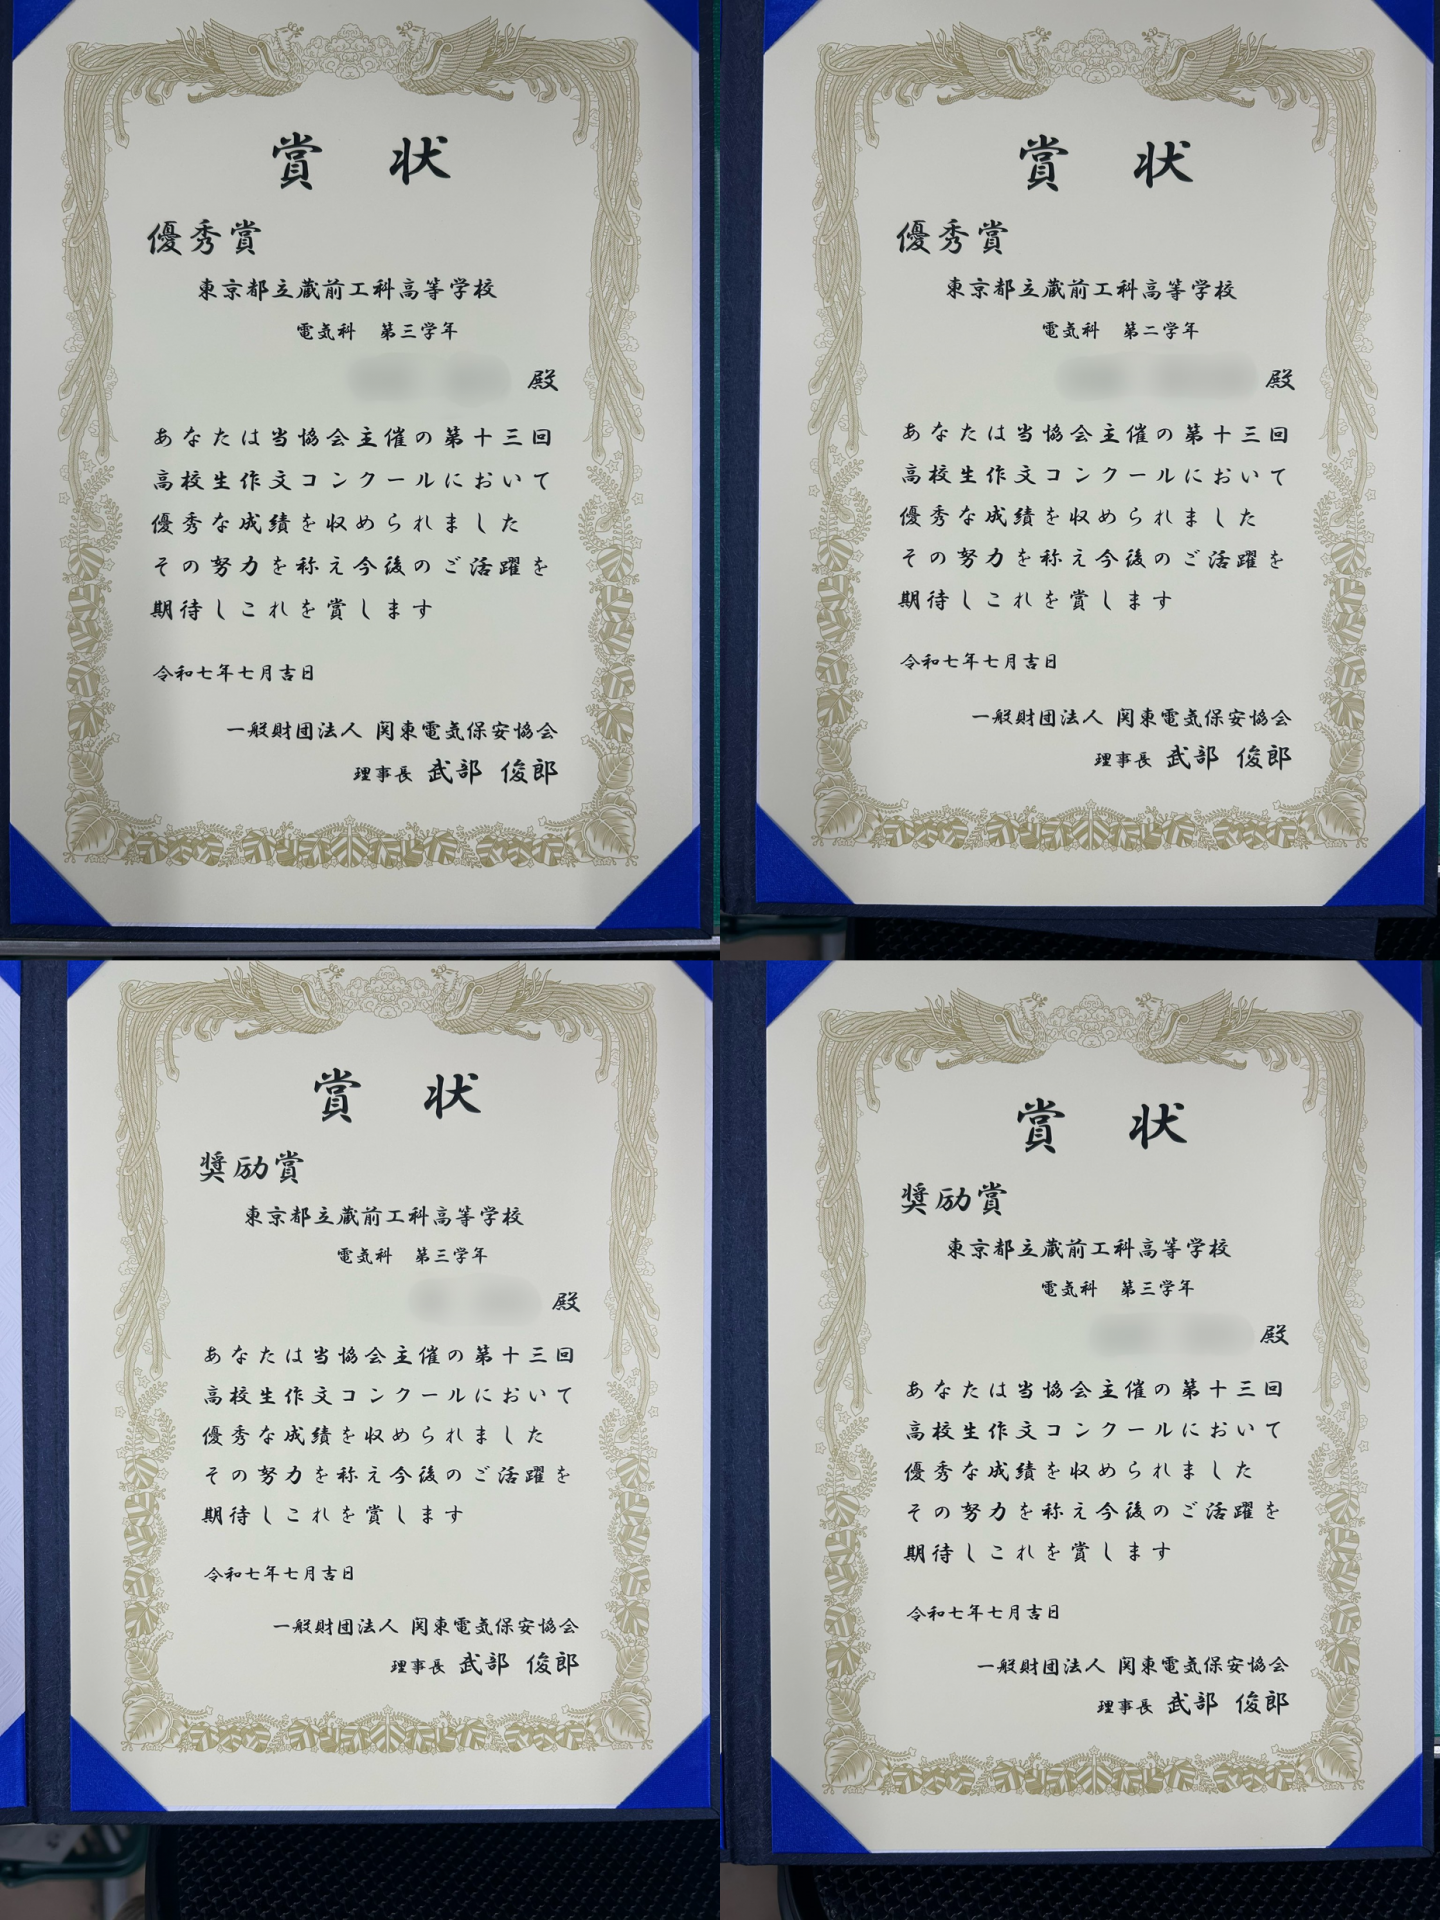 賞 状
優秀賞
東京都立蔵前工科高等学校
電気科 第三学年
殿
あなたは当協会主催の第十三回
高校生作文コンクールにおいて
優秀な成績を収められました
その努力を称え今後のご活躍を
期待しこれを賞します
令和七年七月吉日
一般財団法人 関東電気保安協会
理事長 武部 俊郎
賞 状
優秀賞
東京都立蔵前工科高等学校
電気科 第二学年
殿
あなたは当協会主催の第十三回
高校生作文コンクールにおいて
優秀な成績を収められました
その努力を称え今後のご活躍を
期待しこれを賞します
令和七年七月吉日
一般財団法人 関東電気保安協会
理事長 武部 俊郎
賞 状
奨励賞
東京都立蔵前工科高等学校
電気科 第三学年
殿
あなたは当協会主催の第十三回
高校生作文コンクールにおいて
優秀な成績を収められました
その努力を称え今後のご活躍を
期待しこれを賞します
令和七年七月吉日
一般財団法人 関東電気保安協会
理事長 武部 俊郎
賞 状
奨励賞
東京都立蔵前工科高等学校
電気科 第三学年
殿
あなたは当協会主催の第十三回
高校生作文コンクールにおいて
優秀な成績を収められました
その努力を称え今後のご活躍を
期待しこれを賞します
令和七年七月吉日
一般財団法人 関東電気保安協会
理事長 武部 俊郎